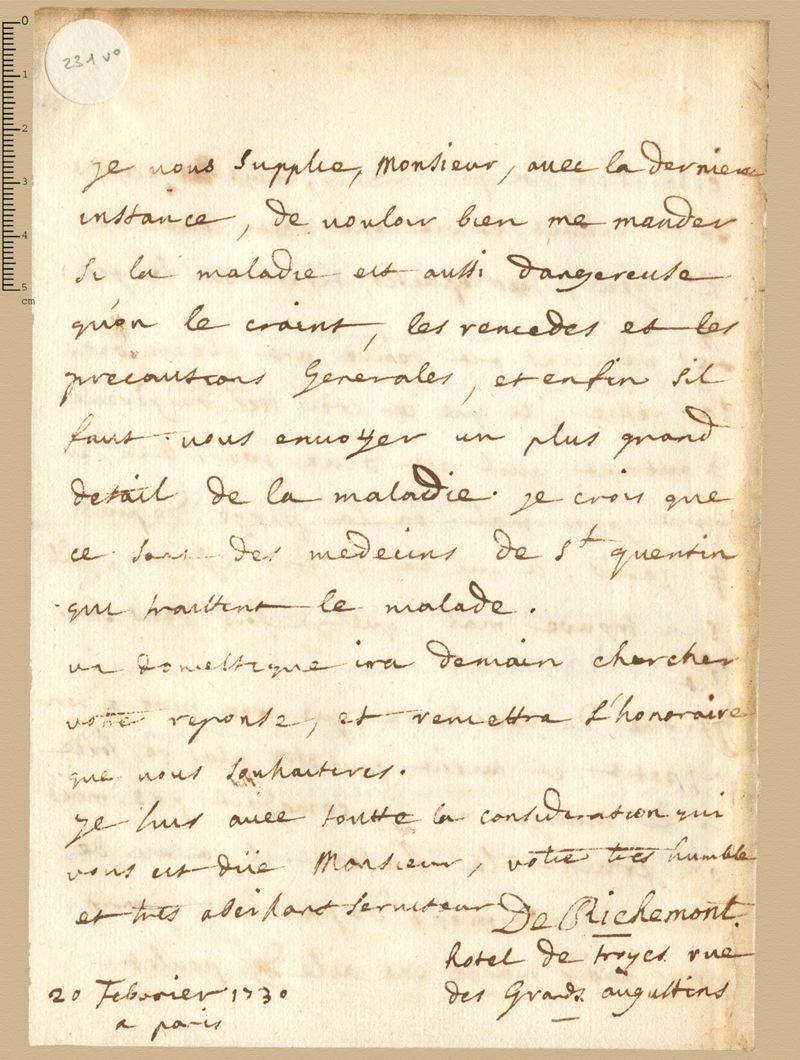 231 vo
je vous supplie, Monsieur, avec la derniere
instance, de vouloir bien me mander
si la maladie est aussi dangereuse
qu'on le craint, les remedes et les
precautions Generales, et enfin sil
faut vous envoyer un plus grand
detail de la maladie. je crois que
ce sont des medecins de St quentin
qui traittent le malade.
un domestique ira demain chercher
votre reponse, et remettra l'honoraire
que vous souhaiteres.
je suis avec toutte la consideration qui
vous est düe Monsieur, votre tres humble
et tres obeissant serviteur De Richemont.
hotel de troyes rue
des Grands augustins
20 Febvrier 1730
a paris
0
1
2
3
4
5
cm